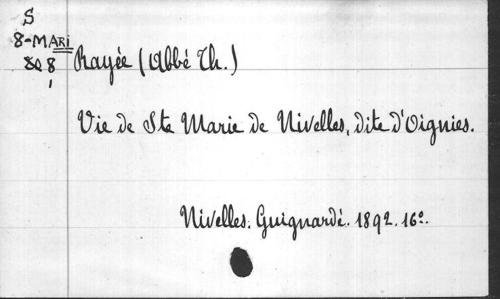 S
8-MARI
808
1
Rayée (Abbé Th.)
Vie de Ste Marie de Nivelles, dite d'Oignies.
Nivelles. Guignardé. 1892. 16º.